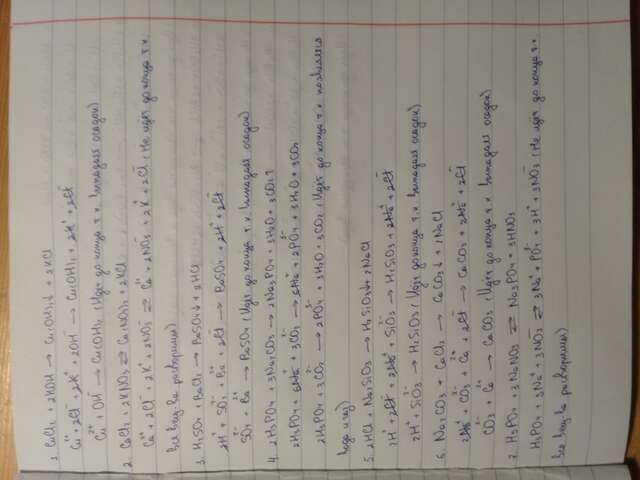 1. CuCl₂ + 2KOH → Cu(OH)₂↓ + 2KCl
Cu²⁺ + 2Cl⁻ + 2K⁺ + 2OH⁻ → Cu(OH)₂ + 2K⁺ + 2Cl⁻
Cu²⁺ + OH⁻ → Cu(OH)₂ (Идёт до конца т.к. выпадает осадок)
2. CaCl₂ + 2KNO₃ ⇄ Ca(NO₃)₂ + 2KCl
Ca²⁺ + 2Cl⁻ + 2K⁺ + 2NO₃⁻ ⇄ Ca²⁺ + 2NO₃⁻ + 2K⁺ + 2Cl⁻ (Не идёт до конца т.к.
все вещ-ва растворимы)
3. H₂SO₄ + BaCl₂ → BaSO₄↓ + 2HCl
2H⁺ + SO₄²⁻ + Ba²⁺ + 2Cl⁻ → BaSO₄ + 2H⁺ + 2Cl⁻
SO₄²⁻ + Ba²⁺ → BaSO₄ (Идёт до конца т.к. выпадает осадок)
4. 2H₃PO₄ + 3Na₂CO₃ → 2Na₃PO₄ + 3H₂O + 3CO₂↑
2H₃PO₄ + 6Na⁺ + 3CO₃²⁻ → 6Na⁺ + 2PO₄³⁻ + 3H₂O + 3CO₂
2H₃PO₄ + 3CO₃²⁻ → 2PO₄³⁻ + 3H₂O + 3CO₂ (Идёт до конца т.к.
вода и газ)
5. 2HCl + Na₂SiO₃ → H₂SiO₃↓ + 2NaCl
2H⁺ + 2Cl⁻ + 2Na⁺ + SiO₃²⁻ → H₂SiO₃ + 2Na⁺ + 2Cl⁻
2H⁺ + SiO₃²⁻ → H₂SiO₃ (Идёт до конца т.к. выпадает осадок)
6. Na₂CO₃ + CaCl₂ → CaCO₃↓ + 2NaCl
2Na⁺ + CO₃²⁻ + Ca²⁺ + 2Cl⁻ → CaCO₃ + 2Na⁺ + 2Cl⁻
CO₃²⁻ + Ca²⁺ → CaCO₃ (Идёт до конца т.к. выпадает осадок)
7. H₃PO₄ + 3NaNO₃ ⇄ Na₃PO₄ + 3HNO₃
H₃PO₄ + 3Na⁺ + 3NO₃⁻ ⇄ 3Na⁺ + PO₄³⁻ + 3H⁺ + 3NO₃⁻ (Не идёт до конца т.к.
все вещ-ва растворимы)